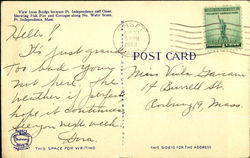 View from Bridge between Pt. Independence and Onset
Showing Fish Pier and Cottages along No. Water Street,
Pt. Independence, Mass.
Hello!
It's just grand
Too bad your
not here. The
weather if perfect
hope it continues
See you next week
Dora.
POST CARD
Miss Viola
14 Burrett St.
Roxbury 19, Mass.
THIS SPACE FOR WRITING
THIS SIDE IS FOR THE ADDRESS